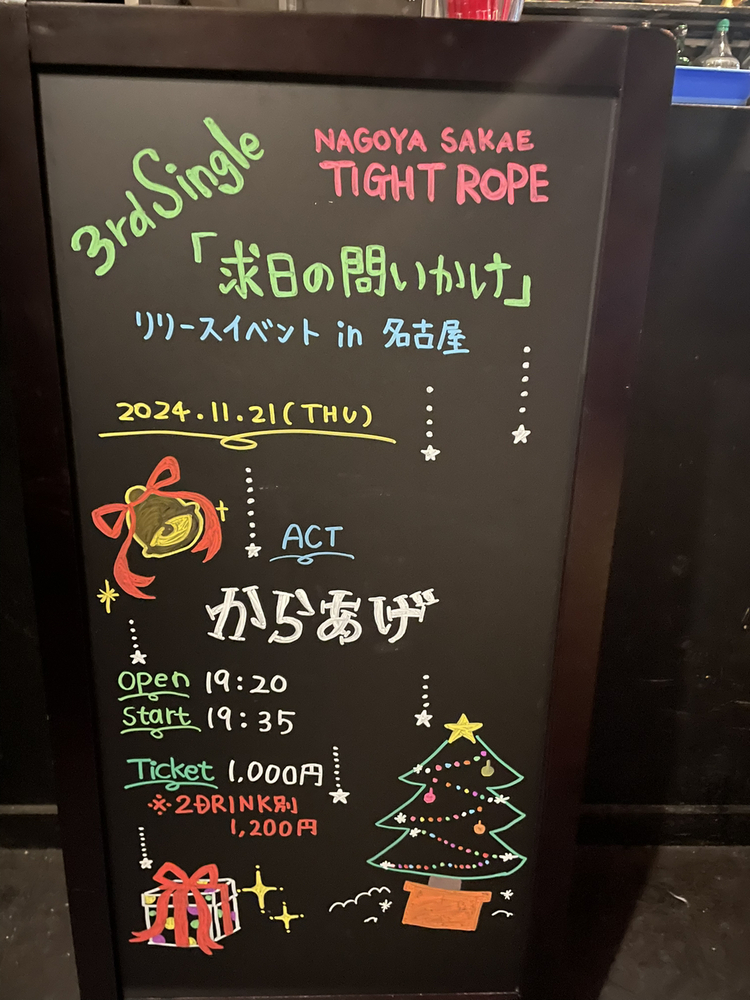 3rd Single
NAGOYA SAKAE
TIGHT ROPE
「求日の問いかけ」
リリースイベント in 名古屋
2024.11.21(THU)
ACT
からあげ
open 19:20
Start 19:35
Ticket 1,000円
※2DRINK別
1,200円